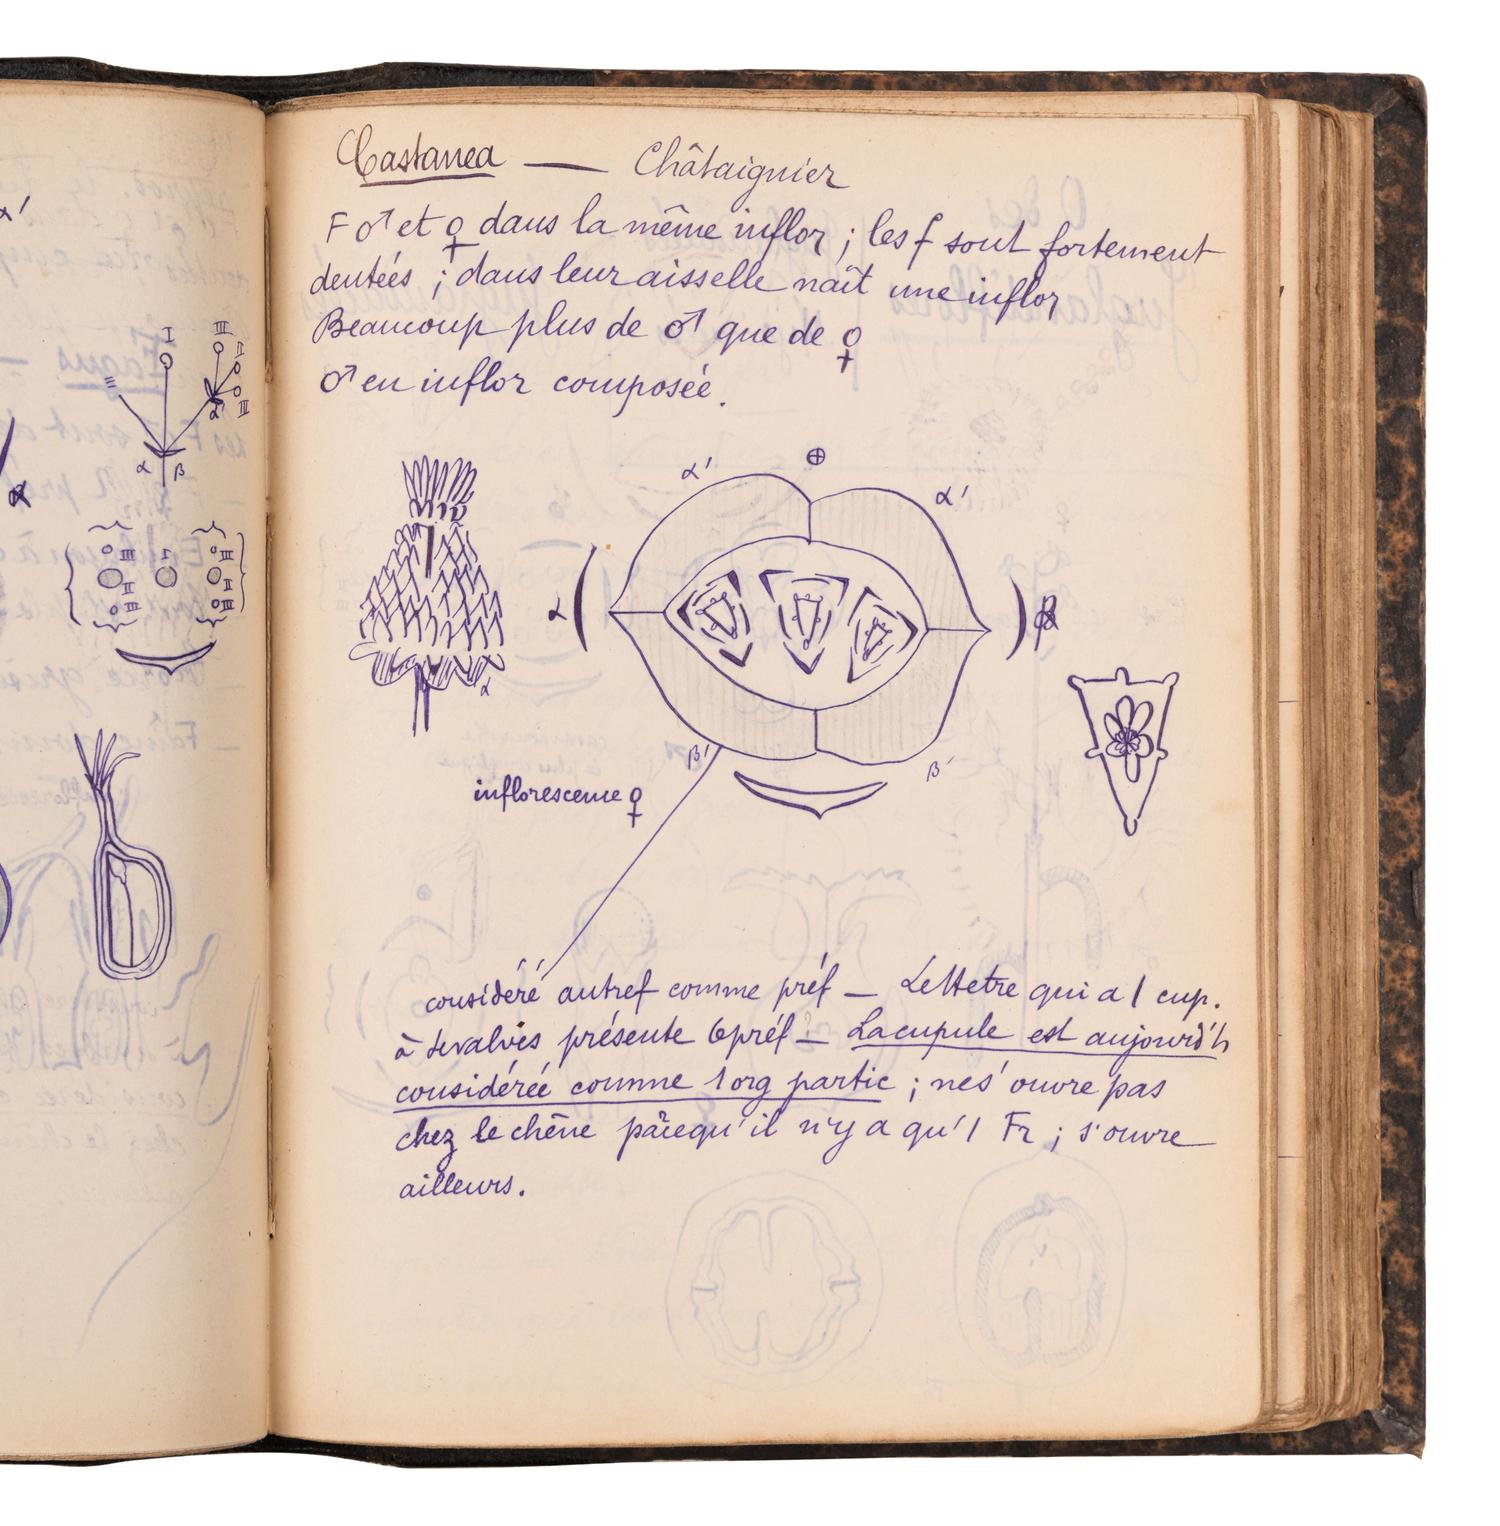 Castanea — Châtaignier
F ♂ et ♀ dans la même inflor ; les f sont fortement
dentées ; dans leur aisselle naît une inflor
Beaucoup plus de ♂ que de ♀
♂ en inflor composée.
α'
I
III
α β
α' ⊕ α'
α
α
β' β'
inflorescence ♀
considéré autref comme préf — Le Hetre qui a 1 cup.
à valves présente 6 préf — La cupule est aujourd'h
considérée comme 1 org partic ; ne s'ouvre pas
chez le chêne parcequ'il n'y a qu'1 Fr ; s'ouvre
ailleurs.